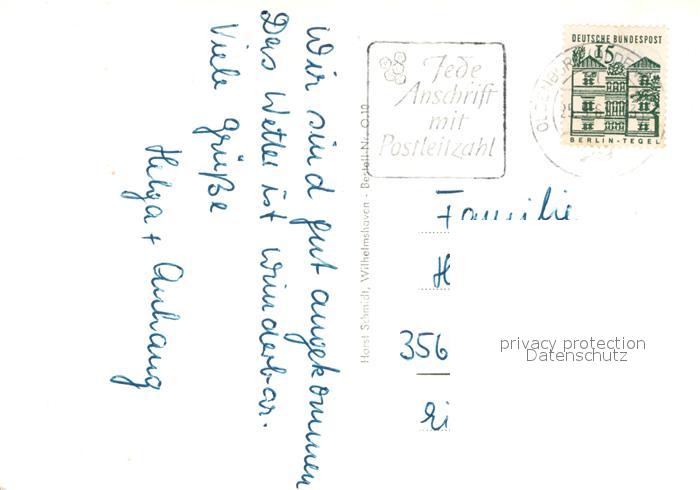 Wir sind gut angekommen
Das Wetter ist wunderbar.
Viele Grüße
Helga + Anhang
Horst Schmidt, Wilhelmshaven - Bestell-Nr. O.10
Jede
Anschrift
mit
Postleitzahl
DEUTSCHE BUNDESPOST
15
BERLIN-TEGEL
Familie
H
356
privacy protection
Datenschutz